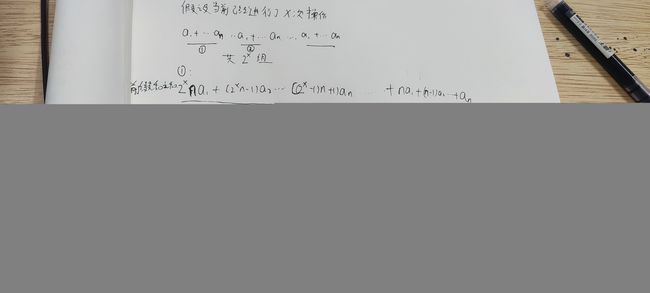 假设当前已经进行了 x 次操作
a₁+…aₙ …a₁+…aₙ … a₁+…aₙ
① ②
共 2ˣ 组
①:
前缀和之和: 2ˣna₁ + (2ˣn-1)a₂ … [(2ˣ-1)n+1]aₙ …… + na₁+(n-1)a₂ …+aₙ